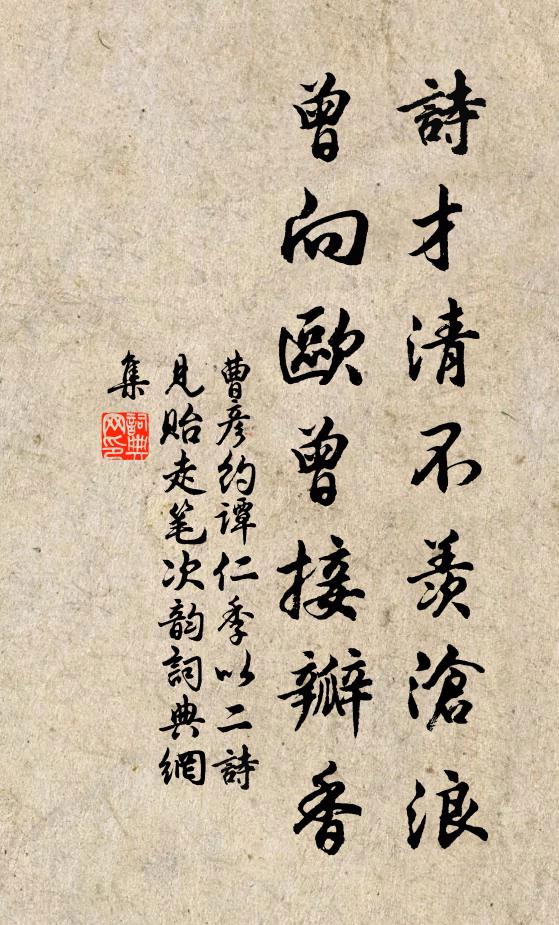 詩才清不羨滄浪
曾向歐曾接瓣香
曹彥約譚仁季以二詩
見貽走笔次韵詞典網
集
詞典
网印